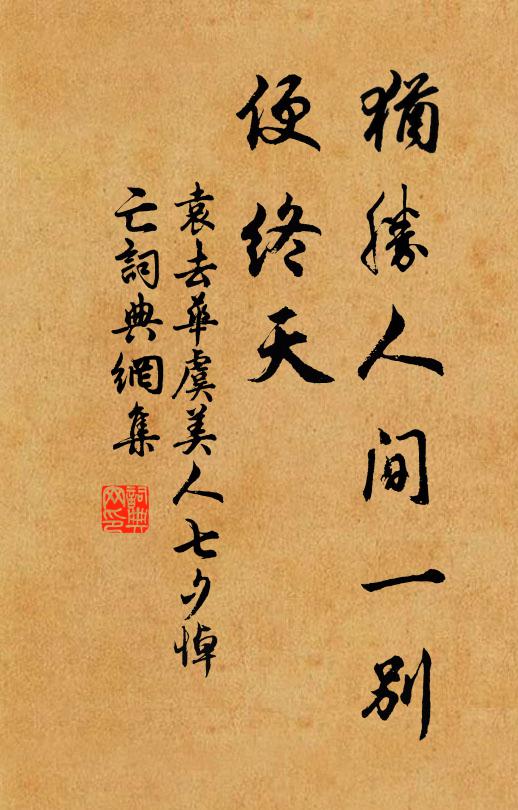 猶勝人間一別
便終天
袁去華虞美人七夕悼
亡詞典網集
詞典
网印